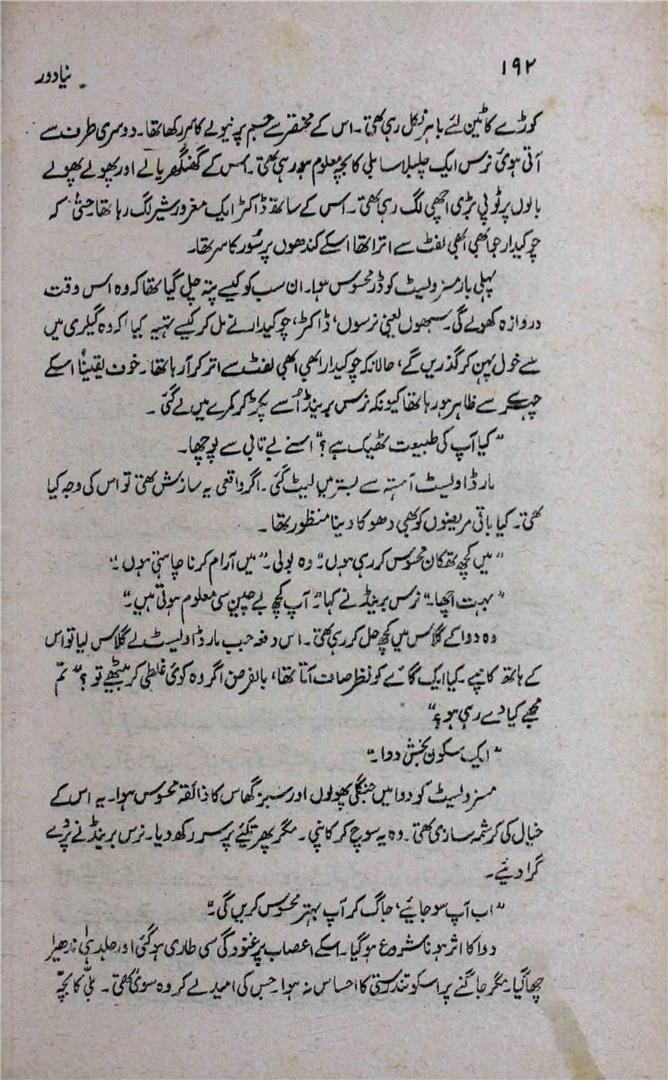 ۱۹۲
نیا دور
کوڑے کا ٹین لئے باہر نکل رہی تھی۔ اس کے مختصر سے جسم پر نیولے کا سر رکھا تھا۔ دوسری طرف سے
آتی ہوئی نرس ایک چلبلا سا بلی کا بچہ معلوم ہو رہی تھی۔ اس کے گھنگھریالے اور پھولے پھولے
بالوں پر ٹوپی بڑی اچھی لگ رہی تھی۔ اس کے ساتھ ڈاکٹر ایک مغرور شیر لگ رہا تھا حتیٰ کہ
چوکیدار جو ابھی ابھی لفٹ سے اترا تھا اسکے کندھوں پر سُور کا سر تھا۔
پہلی بار مسز ولیٹ کو ڈر محسوس ہوا۔ ان سب کو کیسے پتہ چل گیا تھا کہ وہ اس وقت
دروازہ کھولے گی۔ سبھوں یعنی نرسوں، ڈاکٹر، چوکیدار نے مل کر کیسے تہیہ کیا کہ وہ گیلری میں
سے خول پہن کر گذریں گے، حالانکہ چوکیدار ابھی ابھی لفٹ سے اتر کر آ رہا تھا۔ خوف یقیناً اسکے
چہرے سے ظاہر ہو رہا تھا کیونکہ نرس برینڈ اُسے پکڑ کر کمرے میں لے گئی۔
"کیا آپ کی طبیعت ٹھیک ہے؟" اسنے بے تابی سے پوچھا۔
مارڈا ولیٹ آہستہ سے بستر میں لیٹ گئی۔ اگر واقعی یہ سازش تھی تو اس کی وجہ کیا
تھی۔ کیا باقی مریضوں کو بھی دھوکا دینا منظور تھا۔
"میں کچھ تھکان محسوس کر رہی ہوں۔" وہ بولی۔ "میں آرام کرنا چاہتی ہوں۔"
"بہت اچھا۔" نرس برینڈ نے کہا۔ "آپ کچھ بے چین سی معلوم ہوتی ہیں۔"
وہ دوا کے گلاس میں کچھ حل کر رہی تھی۔ اس دفعہ جب مارڈا ولیٹ نے گلاس لیا تو اس
کے ہاتھ کانپے۔ کیا ایک گائے کو نظر صاف آتا تھا، بالفرض اگر وہ کوئی غلطی کر بیٹھے تو؟ "تم
مجھے کیا دے رہی ہو؟"
"ایک سکون بخش دوا۔"
مسز ولیٹ کو دوا میں جنگلی پھولوں اور سبز گھاس کا ذائقہ محسوس ہوا۔ یہ اس کے
خیال کی کرشمہ سازی تھی۔ وہ یہ سوچ کر کانپی۔ مگر پھر تکئے پر سر رکھ دیا۔ نرس برینڈ نے پردے
گرا دیئے۔
"اب آپ سو جایئے، جاگ کر آپ بہتر محسوس کریں گی۔"
دوا کا اثر ہونا شروع ہو گیا۔ اسکے اعصاب پر غنودگی سی طاری ہو گئی اور جلد ہی اندھیرا
چھا گیا۔ مگر جاگنے پر اسکو تندرستی کا احساس نہ ہوا۔ جس کی امید لے کر وہ سوئی تھی۔ بلّی کا بچّہ